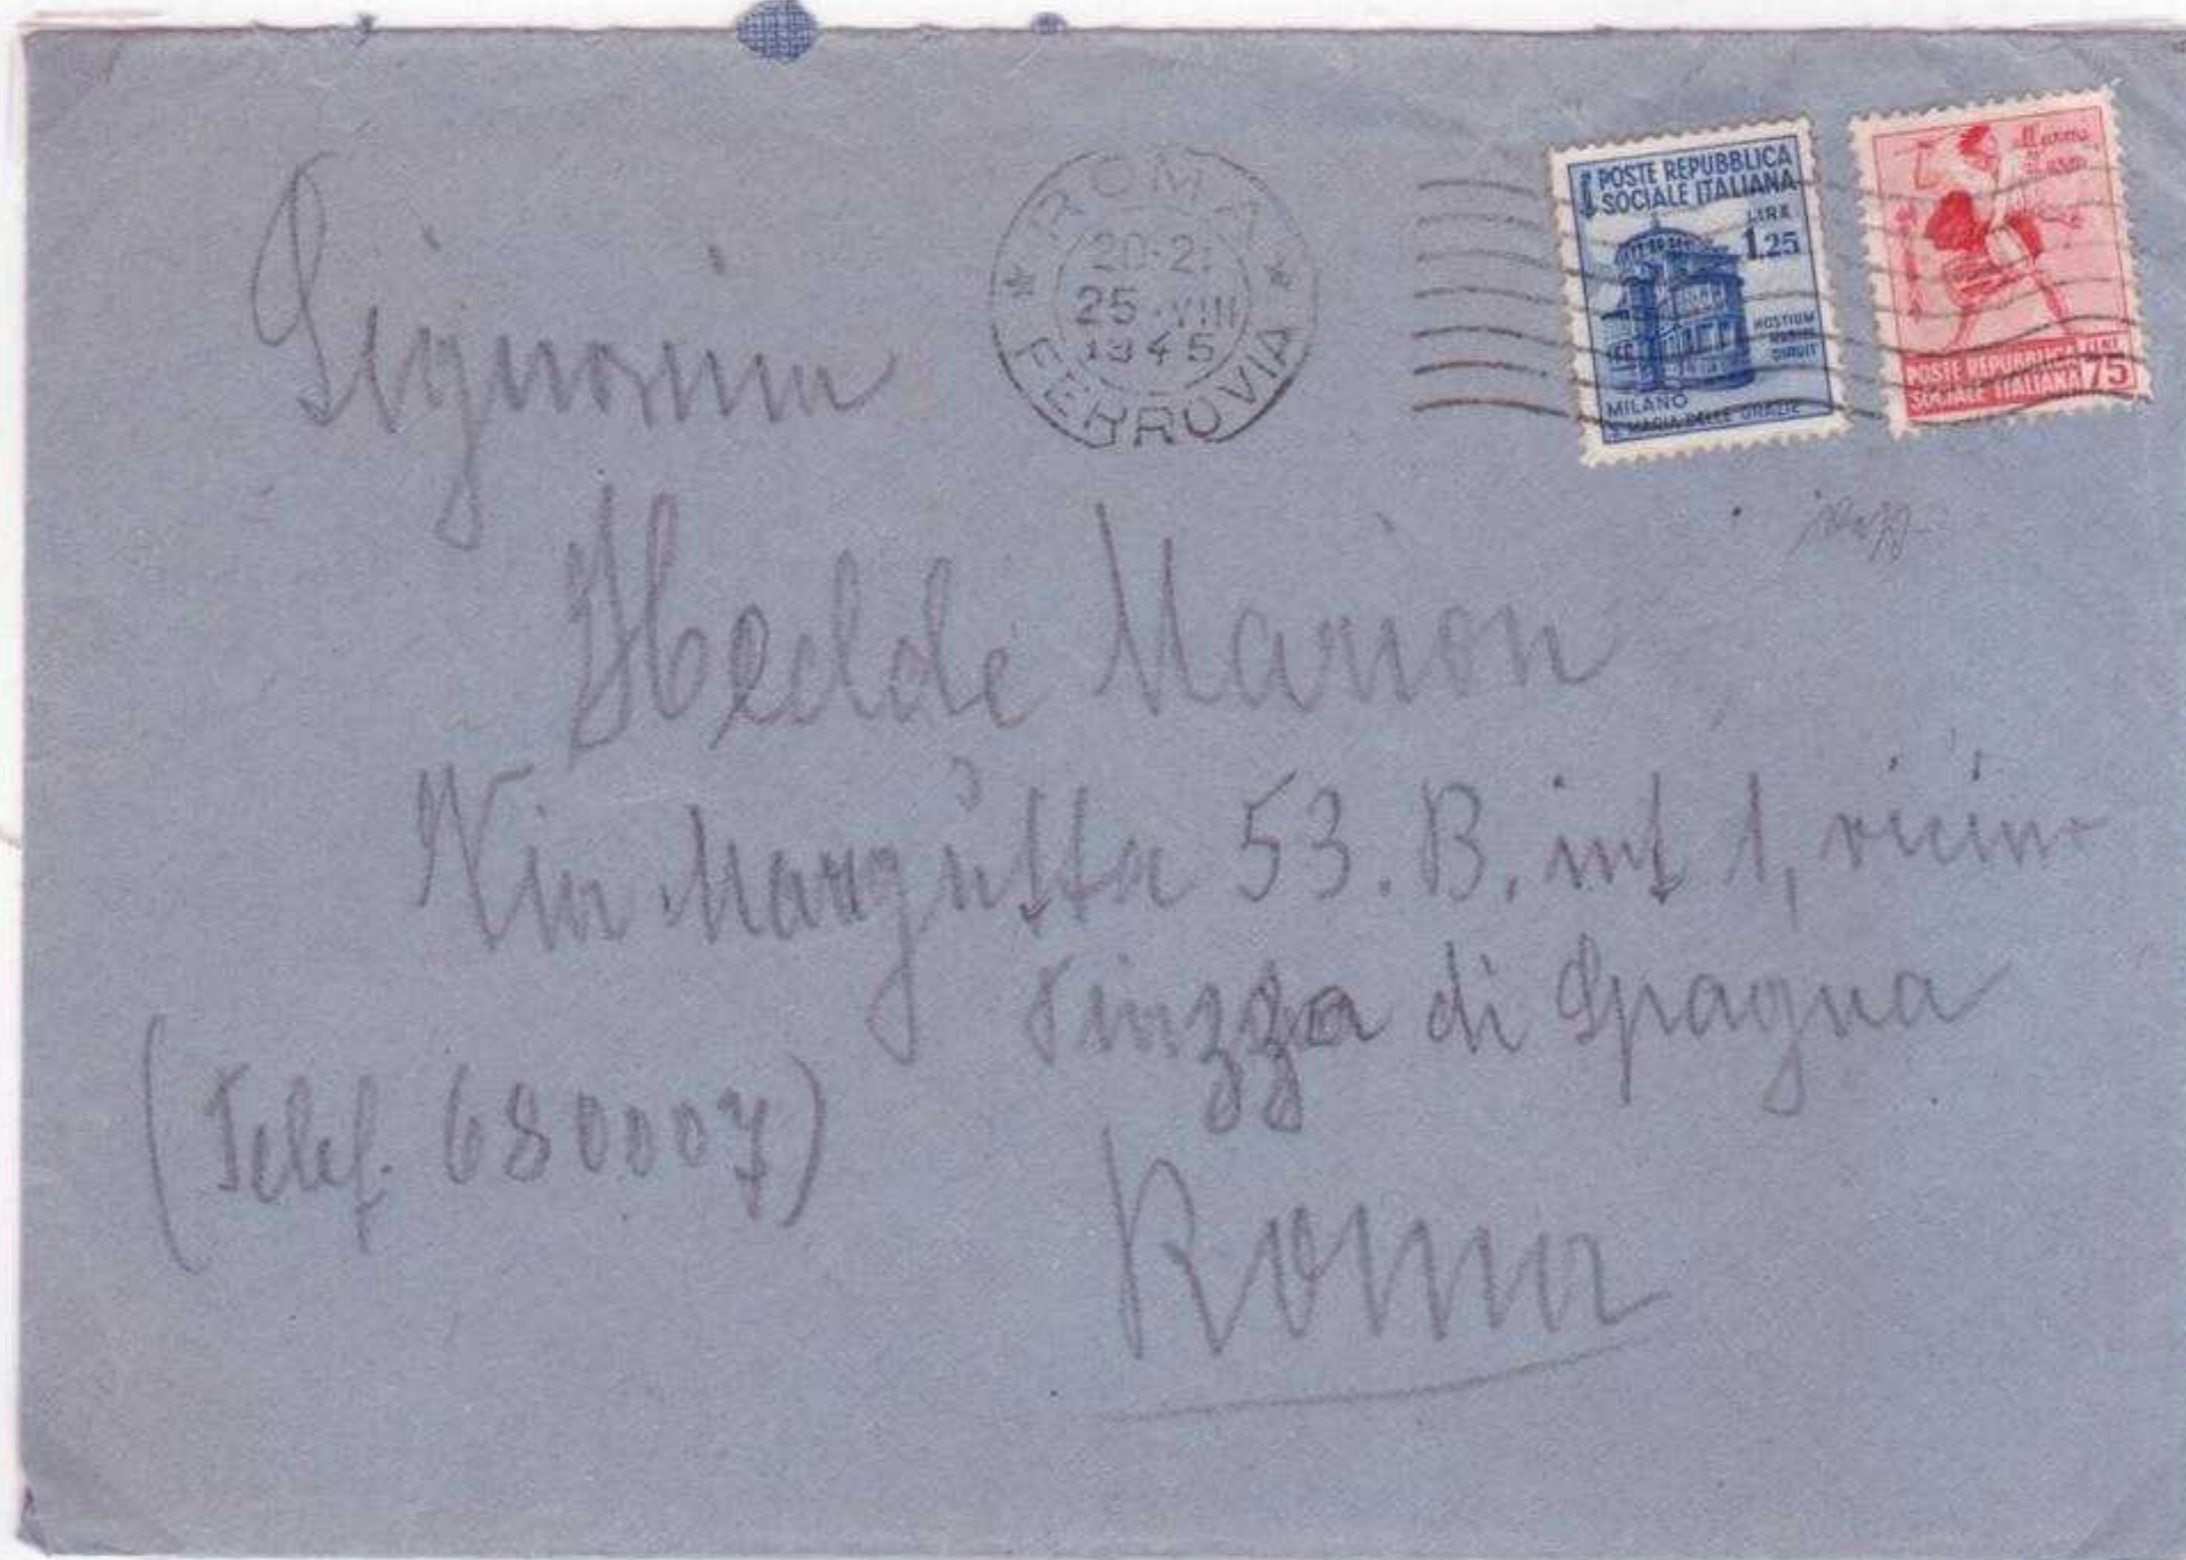 ROMA
20-21
25·VIII
1945
FERROVIA
POSTE REPUBBLICA
SOCIALE ITALIANA
LIRE
1.25
HOSTIUM
RABIES
DIRUIT
MILANO
S. MARIA DELLE GRAZIE
POSTE REPUBBLICA
SOCIALE ITALIANA 75
Signorina
Hedde Marion
Via Margutta 53. B. int 1, vicino
Piazza di Spagna
(Telef. 680007)
Roma